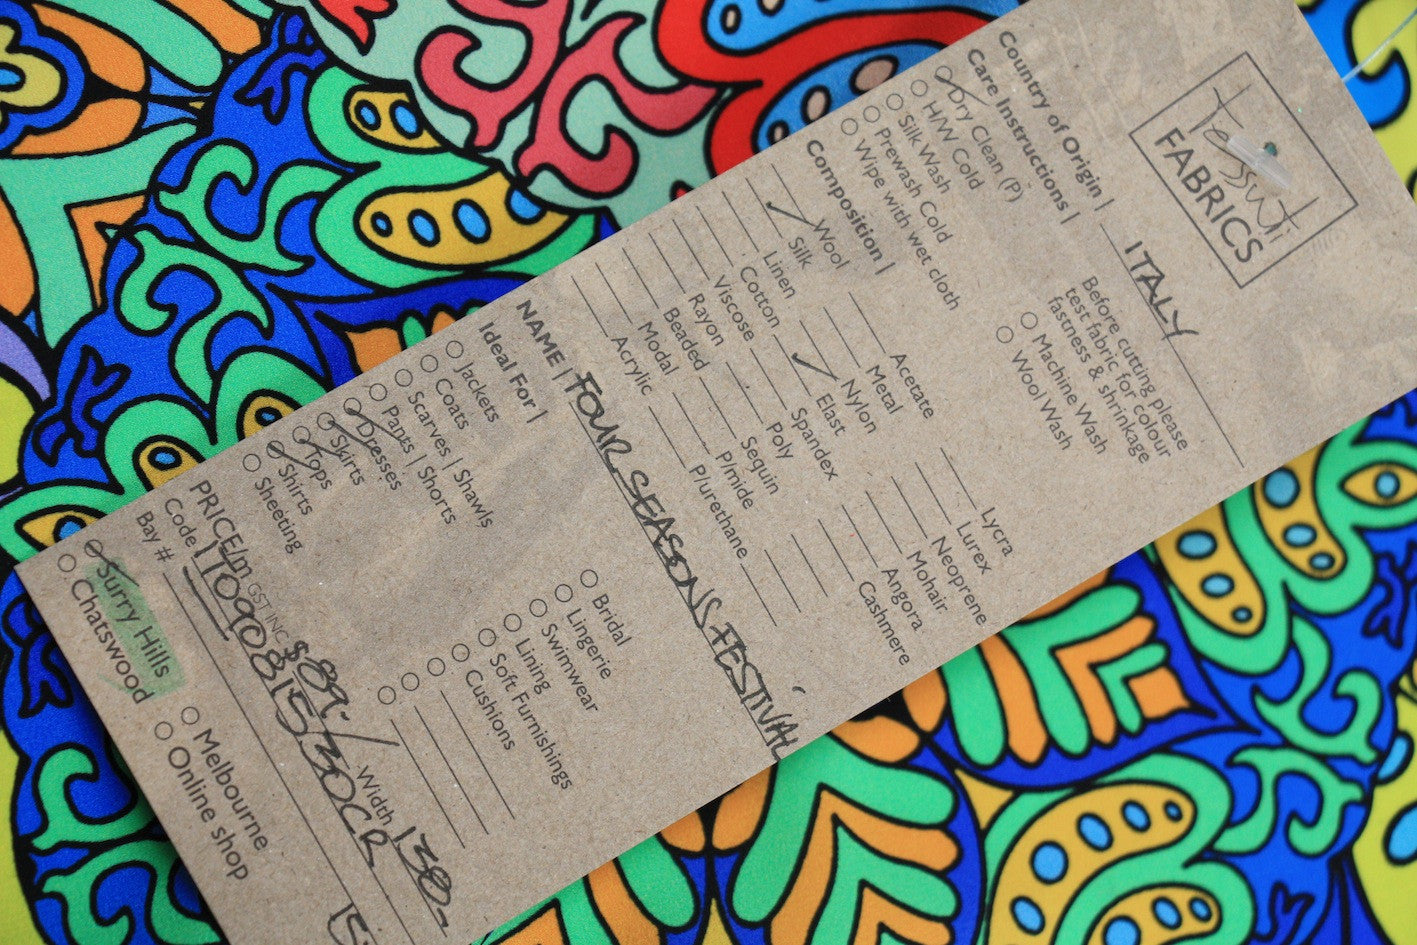 Tessuti
FABRICS
Country of Origin | ITALY
Care Instructions |
Dry Clean (P)
H/W Cold
Silk Wash
Prewash Cold
Wipe with wet cloth
Before cutting please
test fabric for colour
fastness & shrinkage
Machine Wash
Wool Wash
Composition |
Wool
Silk
Linen
Cotton
Viscose
Rayon
Beaded
Modal
Acrylic
Acetate
Metal
Nylon
Elast
Spandex
Poly
Sequin
P/mide
P/urethane
Lycra
Lurex
Neoprene
Mohair
Angora
Cashmere
NAME | FOUR SEASONS FESTIVAL
Ideal For |
Jackets
Coats
Scarves | Shawls
Pants | Shorts
Dresses
Skirts
Tops
Shirts
Sheeting
Bridal
Lingerie
Swimwear
Lining
Soft Furnishings
Cushions
PRICE/m GST INC $89./ Width 130-
Code
Bay #
Surry Hills
Chatswood
Melbourne
Online shop